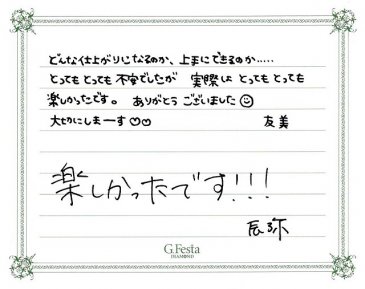 どんな仕上がりになるのか、上手にできるのか.....
とっても とっても 不安でしたが 実際は とっても とっても
楽しかったです。 ありがとう ございました☺
大切にしまーす♡♡ 友美
楽しかったです!!!
辰弥
G.Festa
DIAMOND